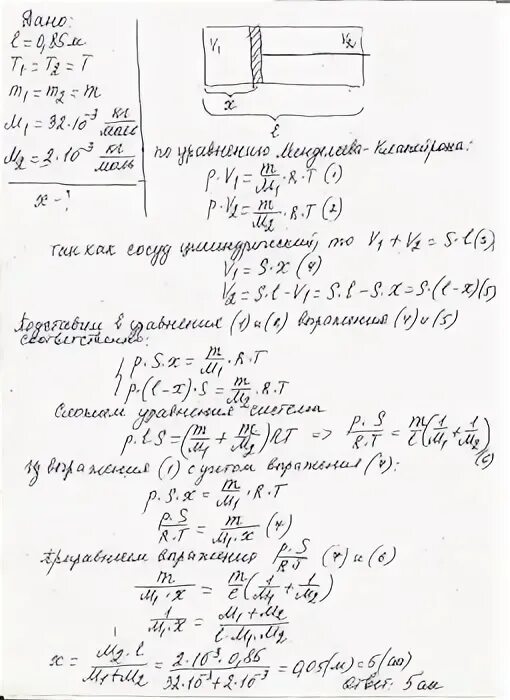 Дано:
l = 0,85 м
T₁ = T₂ = T
m₁ = m₂ = m
M₁ = 32·10⁻³ кг/моль
M₂ = 2·10⁻³ кг/моль
x - ?
V₁ V₂
x
l
по уравнению Менделеева-Клапейрона:
p·V₁ = m/M₁ · R·T (1)
p·V₂ = m/M₂ · R·T (2)
так как сосуд цилиндрический, то V₁ + V₂ = S·l (3)
V₁ = S·x (4)
V₂ = S·l - V₁ = S·l - S·x = S·(l-x) (5)
Подставим в уравнения (1) и (2) выражения (4) и (5)
соответственно:
p·S·x = m/M₁ · R·T
p·(l-x)·S = m/M₂ · R·T
Сложим уравнения системы
p·l·S = (m/M₁ + m/M₂) RT => p·S/R·T = m/l (1/M₁ + 1/M₂) (6)
Из выражения (1) с учетом выражения (4):
p·S·x = m/M₁ · R·T
p·S/R·T = m/M₁·x (7)
Приравняем выражения p·S/R·T (7) и (6)
m/M₁·x = m/l (1/M₁ + 1/M₂)
1/M₁·x = M₁+M₂/l·M₁·M₂
x = M₂·l/M₁+M₂ = 2·10⁻³·0,85/32·10⁻³+2·10⁻³ = 0,05 (м) = 5 (см)
Ответ: 5 см